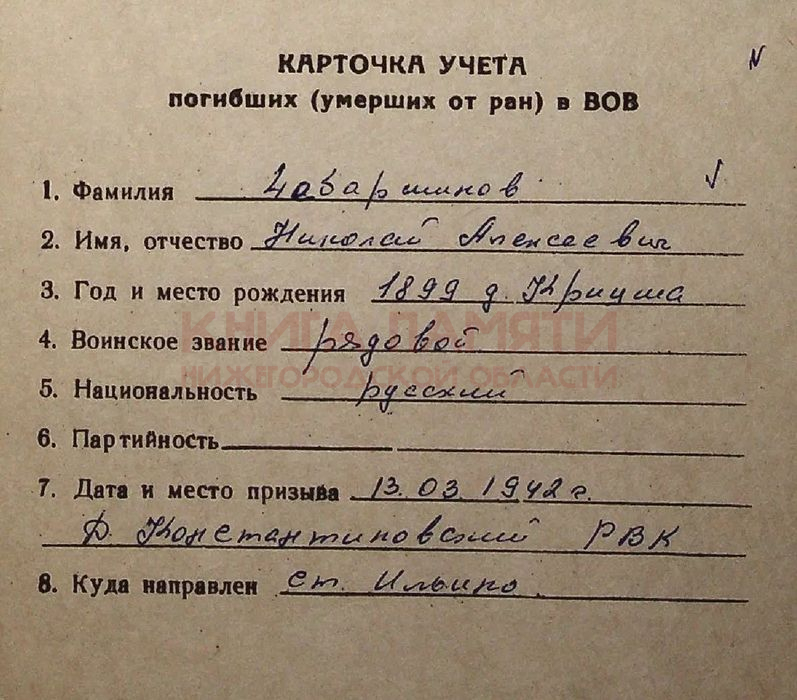 КАРТОЧКА УЧЕТА
погибших (умерших от ран) в ВОВ
1. Фамилия
2. Имя, отчество Николай Алексеевич
3. Год и место рождения 1899 д. Крицша
4. Воинское звание рядовой
КНИГА ПАМЯТИ
НИЖЕГОРОДСКОЙ ОБЛАСТИ
5. Национальность русский
6. Партийность
7. Дата и место призыва 13.03.1942 г.
Д. Константиновский РВК
8. Куда направлен ст. Ильино